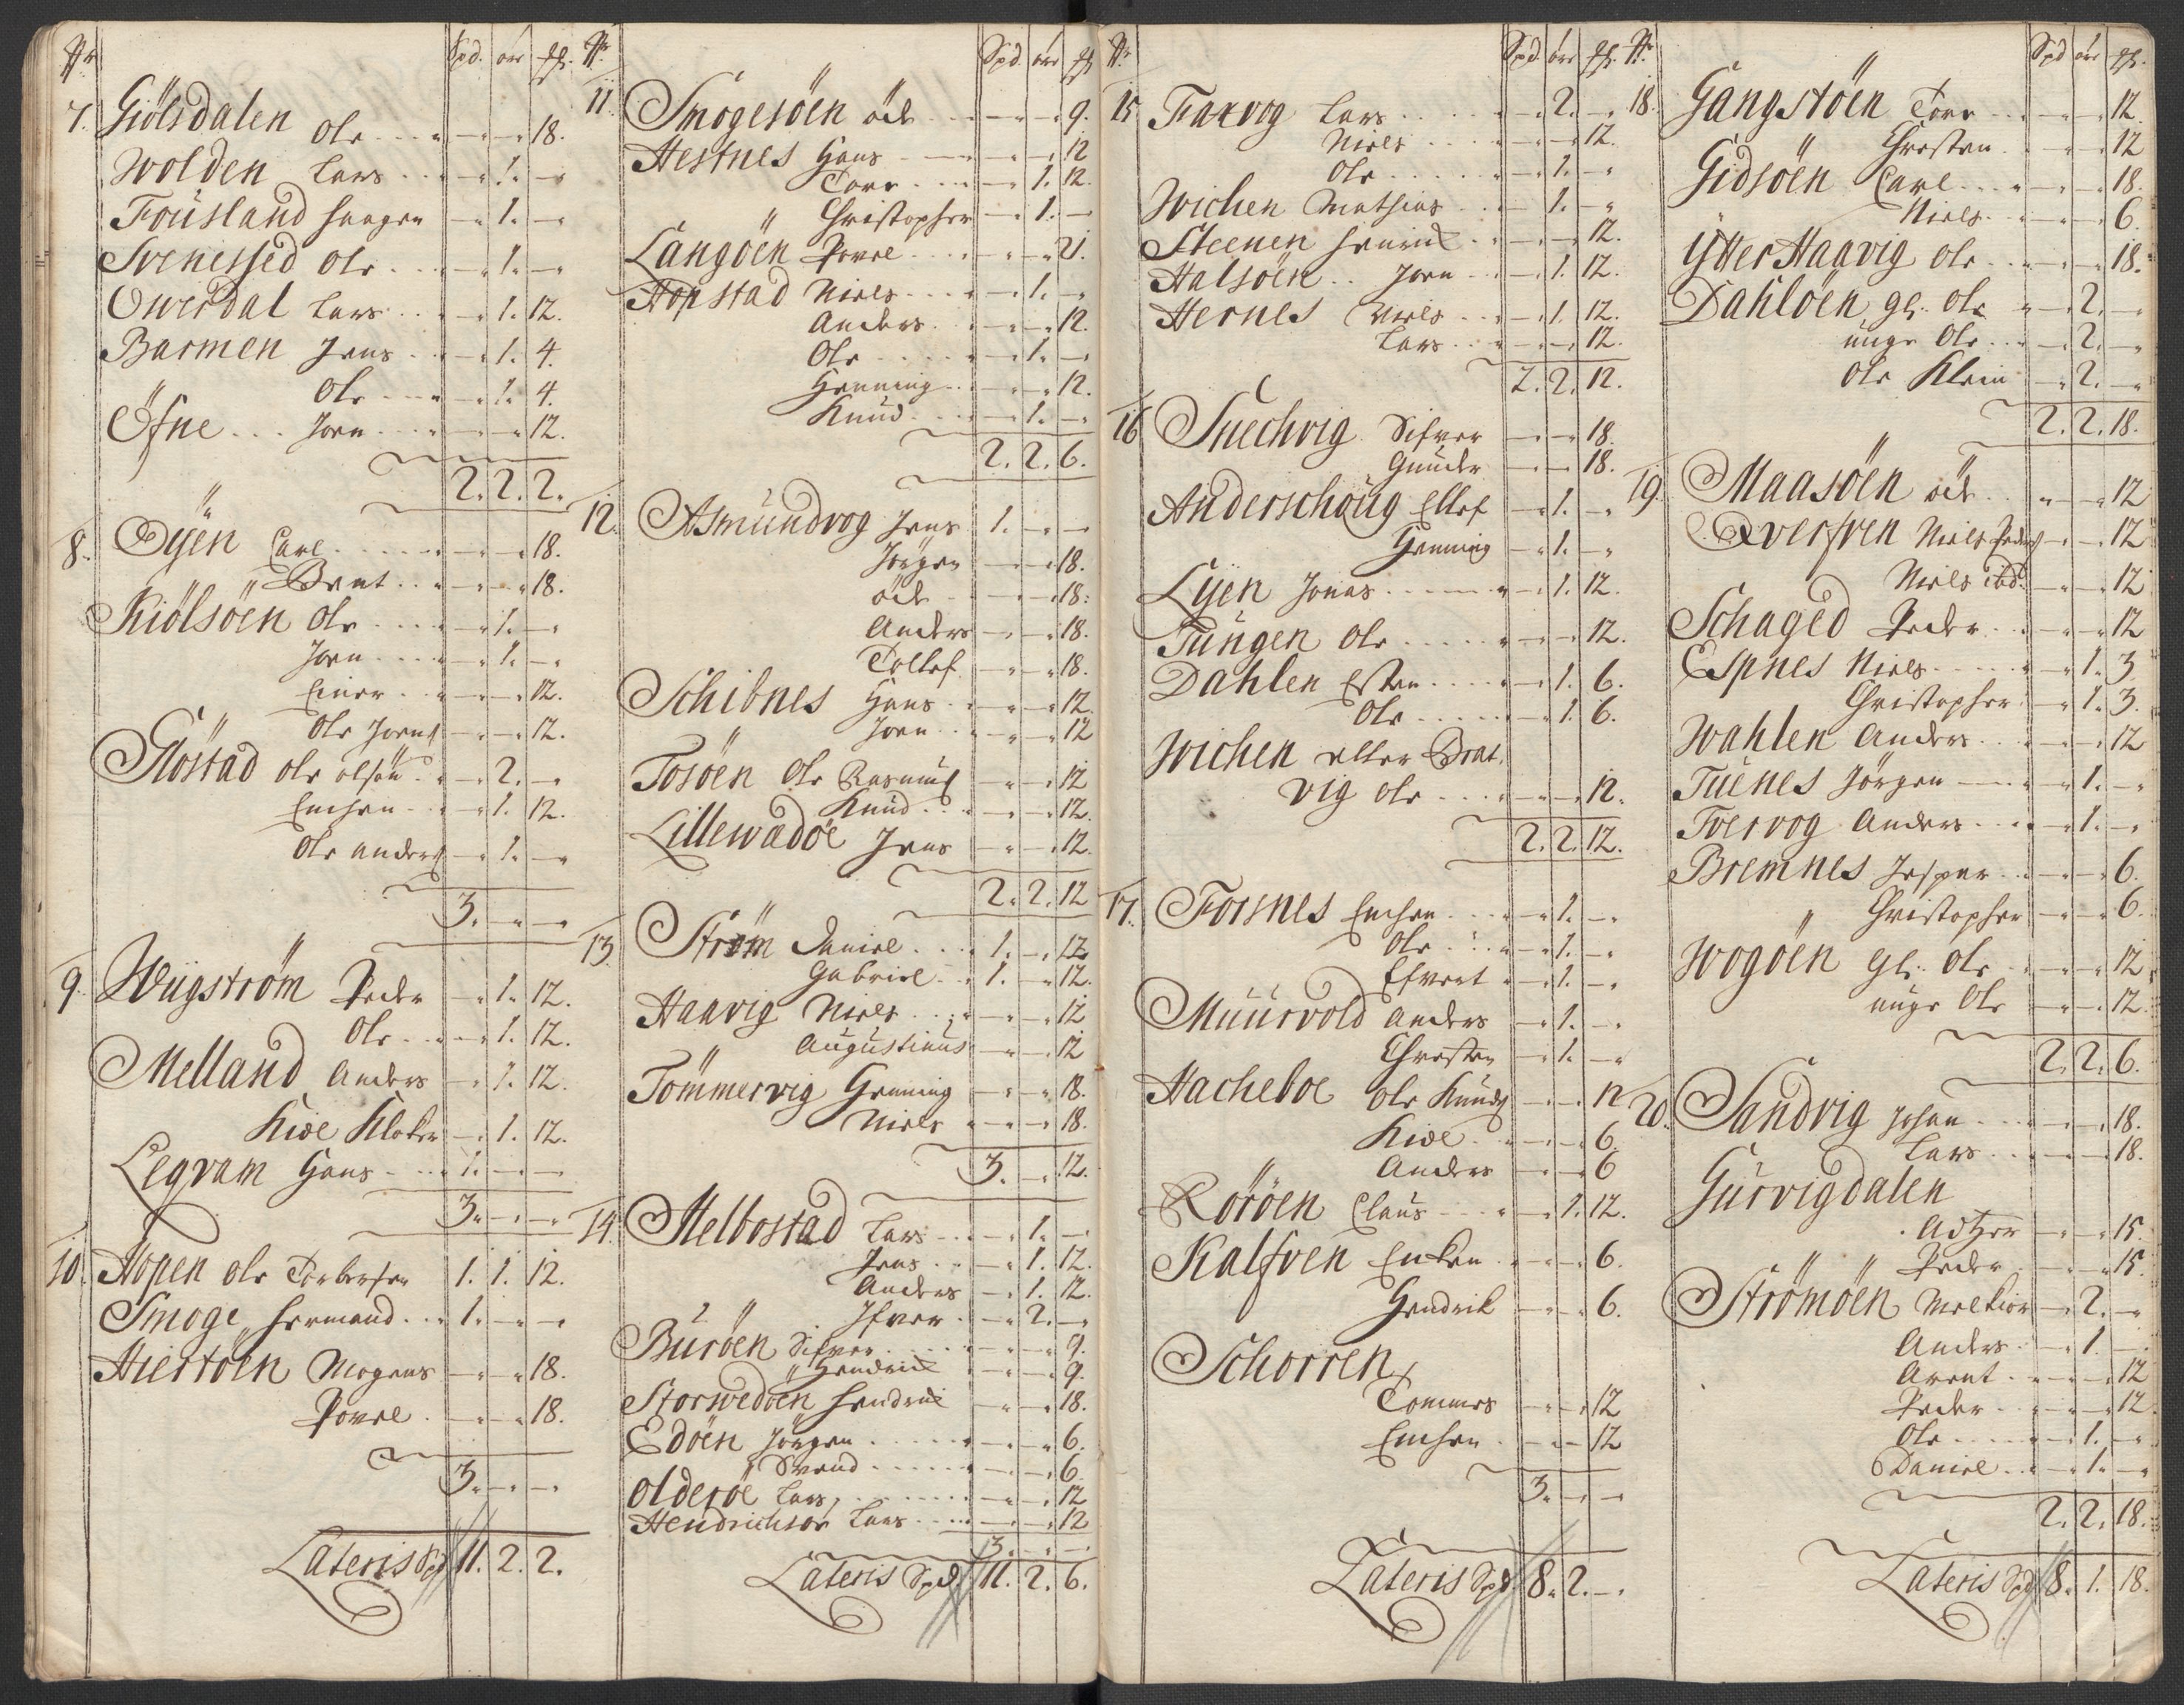 Nr Spd. ört ß.
7. Giölsdalen Ole - - 18.
Wolden Lars - 1. -
Fousland Haagen - 1. -
Svenessed Ole - 1. -
Owerdal Lars - 1. 12.
Barmen Jens - 1. 4.
Ole - 1. 4.
Öfne Joen - - 12.
2. 2. 2.
8. Öÿen Carl - - 18.
Brat - - 18.
Kiölsöen Ole - 1. -
Joen - 1. -
Einer - - 12.
Ole Joens - - 12.
Glöstad Ole Olsön - 2. -
Enchen - 1. 12.
Ole Anders - 1. -
3. - -
9. Wügström Peder - 1. 12.
Ole - 1. 12.
Melland Anders - 1. 12.
Kiöl Kloker - 1. 12.
Leqvam Hans 1. - -
3. - -
10. Hopen Ole Torbersen 1. 1. 12.
Smoge Hermand 1. - -
Hiertöen Mogens - - 18.
Povel - - 18.
3. - -
Lateris Spd 11. 2. 2.
Nr Spd. ört ß
11 Smogesöen öde - - 9.
Hestnes Hans - - 12
Tore - 1. 12.
Christopher - 1. -
Langöen Povel - - 21.
Hopstad Niels - 1. -
Anders - - 12.
Ole - 1. -
Henning - - 12.
Knud - 1. -
2. 2. 6.
12. Asmundvog Jens 1. - -
Jörgen - - 18.
öde - - 18.
Anders - - 18.
Tollef - - 18.
Schibnes Hans - - 12.
Joen - - 12
Tosöen Ole Rasmus - - 12
Knud - - 12.
Lillewadöe Jens - - 12.
2. 2. 12
13. Ström Daniel 1. - 12
Gabriel 1. - 12.
Haavig Niels - - 12
Augustinus - - 12
Tömmervig Henning - - 18.
Niels - - 18.
3. - 12.
14. Melbostad Lars - 1. -
Jens - 1. 12.
Anders - 1. 12.
Ifver - 2. -
Buröen Sifver - - 9.
Hendrich - - 9.
Storwedöen Hendrich - - 18.
Edöen Jörgen - - 6.
Svend - - 6.
Olderöe Lars - - 12
Hendrichsør Lars - - 12
3. - -
Lateris Spd 11. 2. 6.
Nr Spd. ört ß.
15 Faxvog Lars - 2. -
Niels - - 12.
Ole - 1. -
Wichen Mathias - 1. -
Steenen Henrich - - 12.
Halsöen Joen - 1. 12.
Hernes Niels - 1. 12.
Lars - - 12.
2. 2. 12.
16 Snechvig Sifver - - 18.
Gunder - - 18.
Anderschoug Ellef - 1. -
Henning - 1. -
Lÿen Jonas - 1. 12.
Tungen Ole - - 12.
Dahlen Esten - 1. 6.
Ole - 1. 6.
Wichen eller Brat,
vig Ole - - 12.
2. 2. 12.
17. Forsnes Enchen - 1. -
Ole - 1. -
Efvert - 1. -
Muurvold Anders - 1. -
Christen - 1. -
Hacheboe Ole Knuds - - 12
Kiöl - - 6.
Anders - - 6
Roröen Claus - 1. 12.
Kalfven Enken - - 6.
Hendrik - - 6.
Schorren
Tommes - - 12
Enchen - - 12
3. - -
Lateris Spd. 8. 2. -
Nr Spd ört ß.
18. Gangstöen Tore - - 12.
Christen - - 12
Gidsöen Carl - - 18.
Niels - - 6.
Ytter Haavig Ole - - 18.
Dahlöen gl. Ole - 2. -
unge Ole - 2. -
Ole Klein - 2. -
2. 2. 18.
19. Maasöen öde - - 12
Qverfven Niels Peders - - 12
Niels ibd. - - 12
Schaged Peder - - 12
Espnes Niels - 1. 3
Christopher - 1. 3.
Wahlen Anders - - 12
Tuenes Jörgen - 1. -
Tvervog Anders - 1. -
Bremnes Jesper - - 6.
Christopher - - 6.
Wogöen gl. Ole - - 12
unge Ole - - 12.
2. 2. 6.
20. Sandvig Johan - - 18.
Lars - - 18.
Gurvigdalen
Adtzer - - 15.
Peder - - 15.
Strömöen Melkior - 2. -
Anders - 1. -
Arent - - 12
Peder - - 12
Ole - 1. -
Daniel - 1. -
2. 2. 18.
Lateris Spd 8. 1. 18.